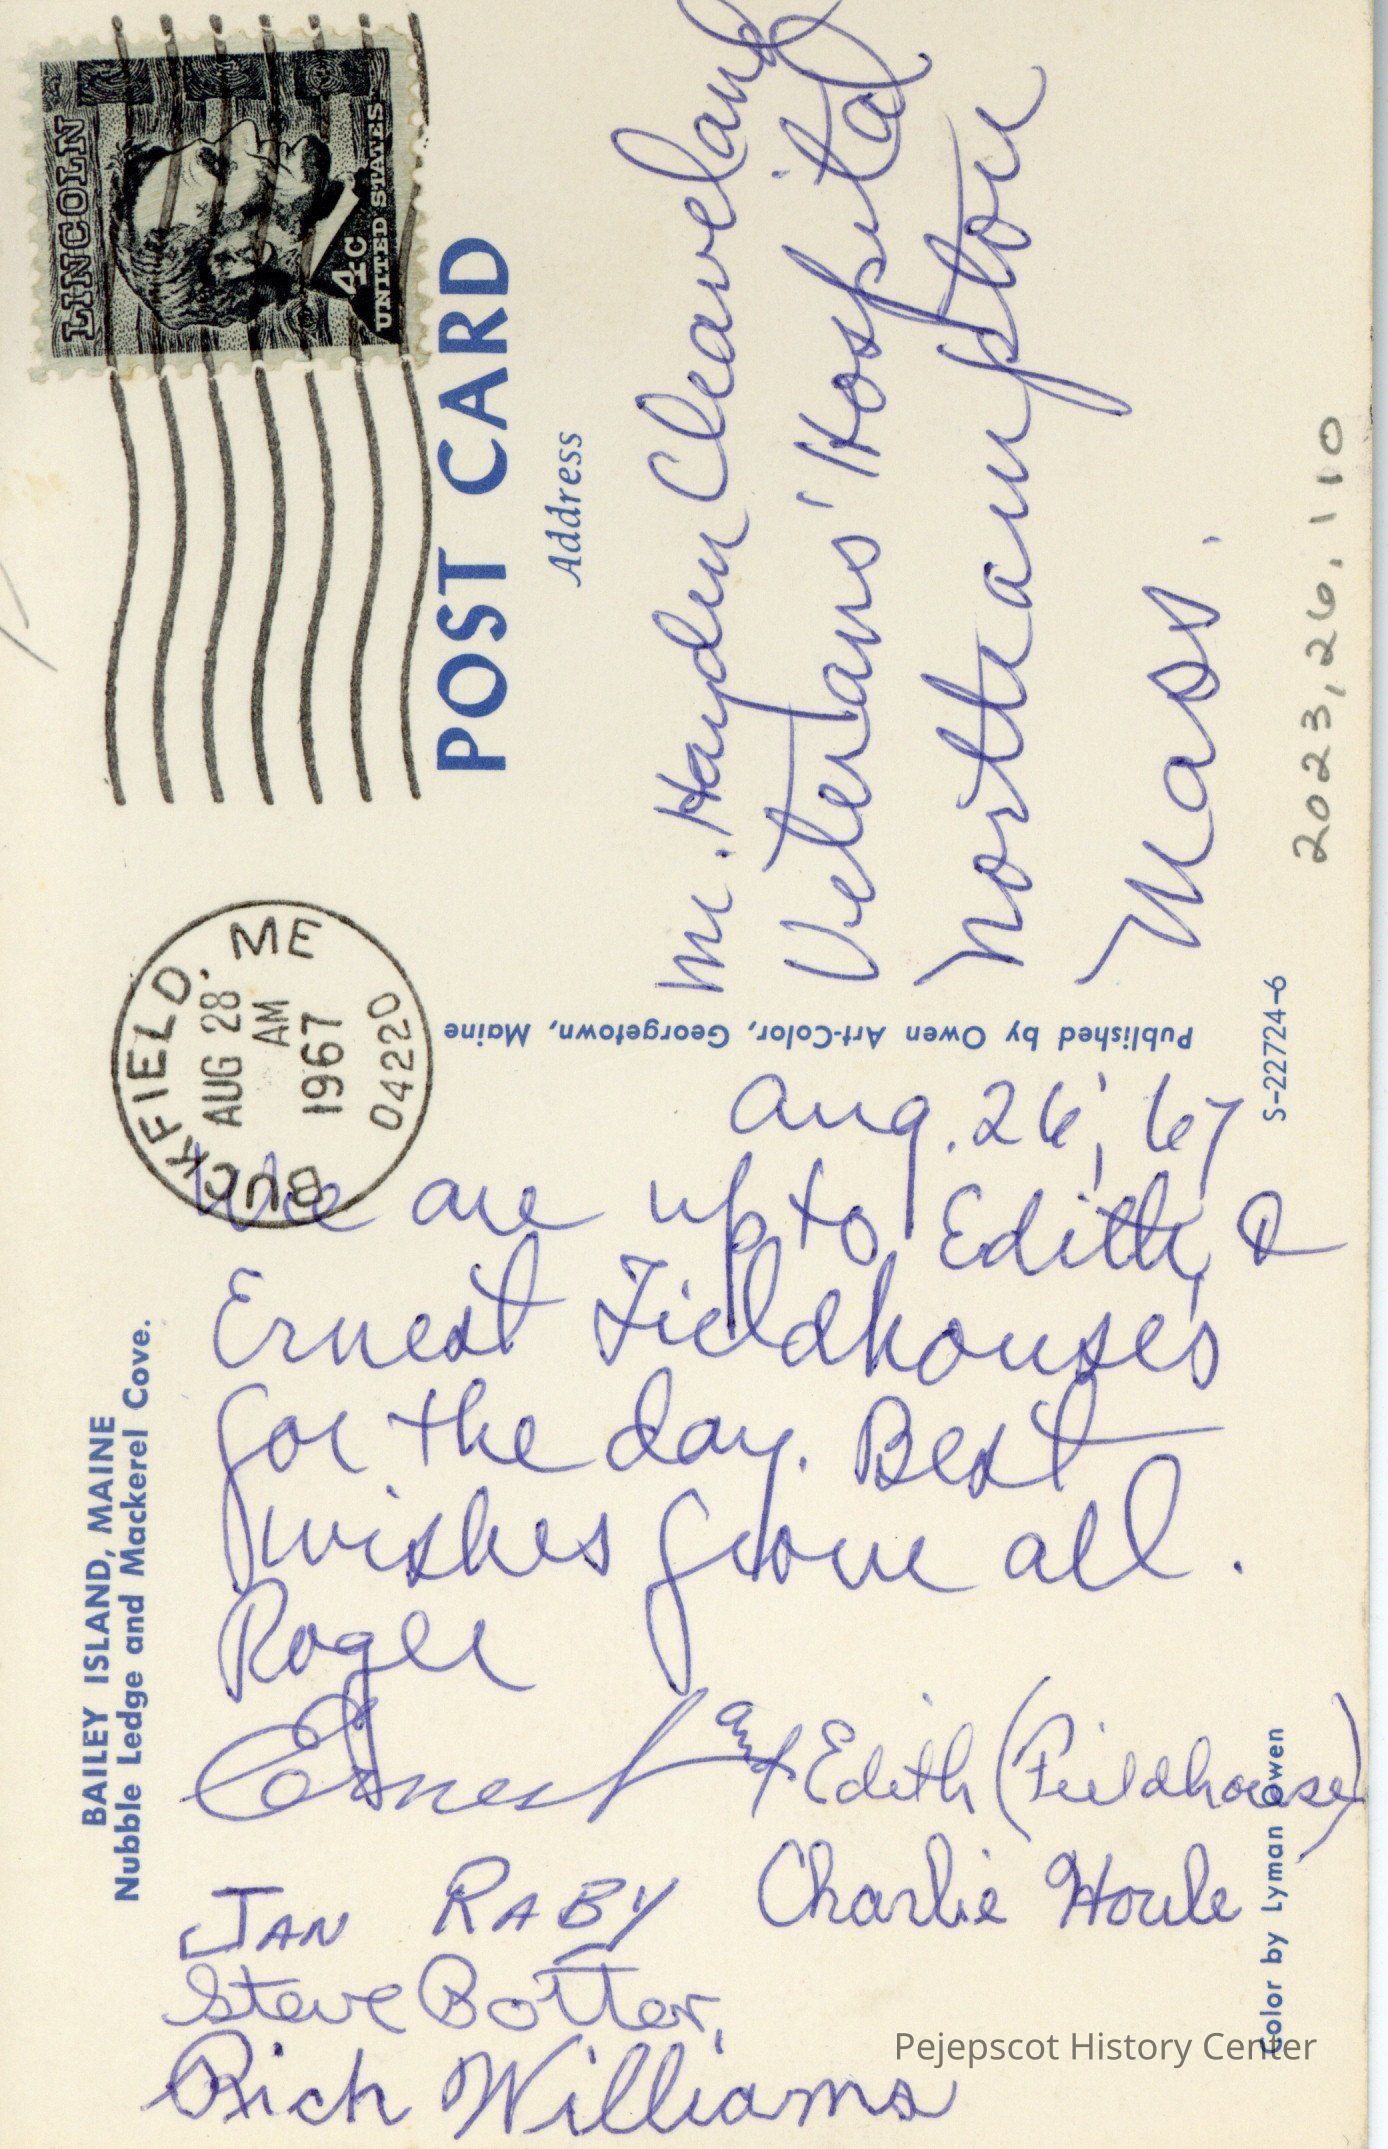 BAILEY ISLAND, MAINE
Nubble Ledge and Mackerel Cove.
Aug. 26, '67
We are up to Edith &
Ernest Fieldhouse's
for the day. Best
wishes from all.
Roger
Ernest and Edith (Fieldhouse)
JAN RABY Charlie Houle
Steve Botter,
Rich Williams
Color by Lyman Owen
S-22724-6
Published by Owen Art-Color, Georgetown, Maine
BUCKFIELD, ME
AUG 28
AM
1967
04220
LINCOLN
4c
UNITED STATES
POST CARD
Address
Mr. Hayden Cleaveland
Veterans' Hospital
Northampton
Mass.
2023.26.110
Pejepscot History Center